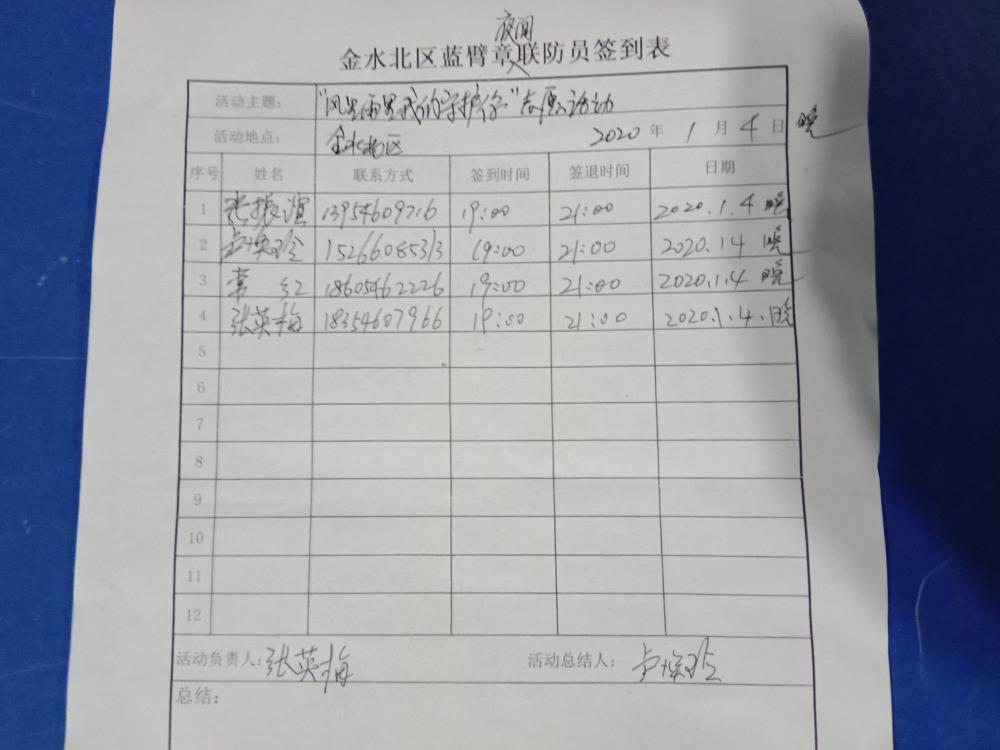 夜间
金水北区蓝臂章联防员签到表
活动主题: "风里雨里我们守护你"志愿活动
活动地点: 金水北区 2020 年 1 月 4 日 晚
序号 姓名 联系方式 签到时间 签退时间 日期
1 张振滨 13954609716 19:00 21:00 2020.1.4 晚
2 15266085313 19:00 21:00 2020.1.4 晚
3 常红 18605462226 19:00 21:00 2020.1.4 晚
4 张英梅 18354607966 19:00 21:00 2020.1.4.晚
5
6
7
8
9
10
11
12
活动负责人: 张英梅 活动总结人:
总结: